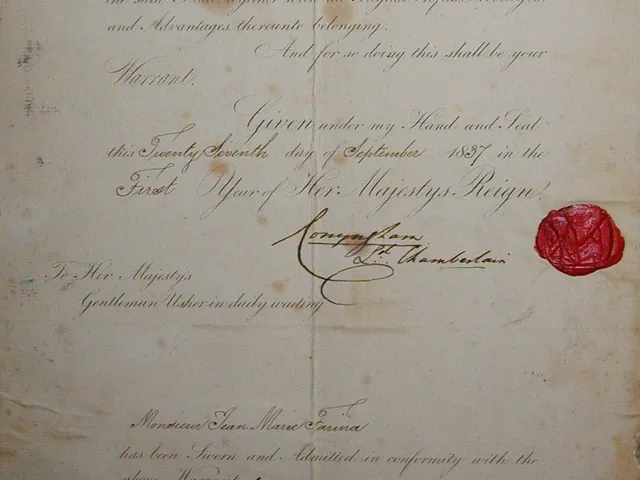 and Advantages thereunto belonging.
And for so doing this shall be your
Warrant.
Given under my Hand and Seal
this Twenty Seventh day of September 1837 in the
First Year of Her Majestys Reign.
Conyngham
Ld. Chamberlain
To Her Majestys
Gentleman Usher in daily waiting.
Monsieur Jean Marie Farina
has been Sworn and Admitted in conformity with the
above Warrant